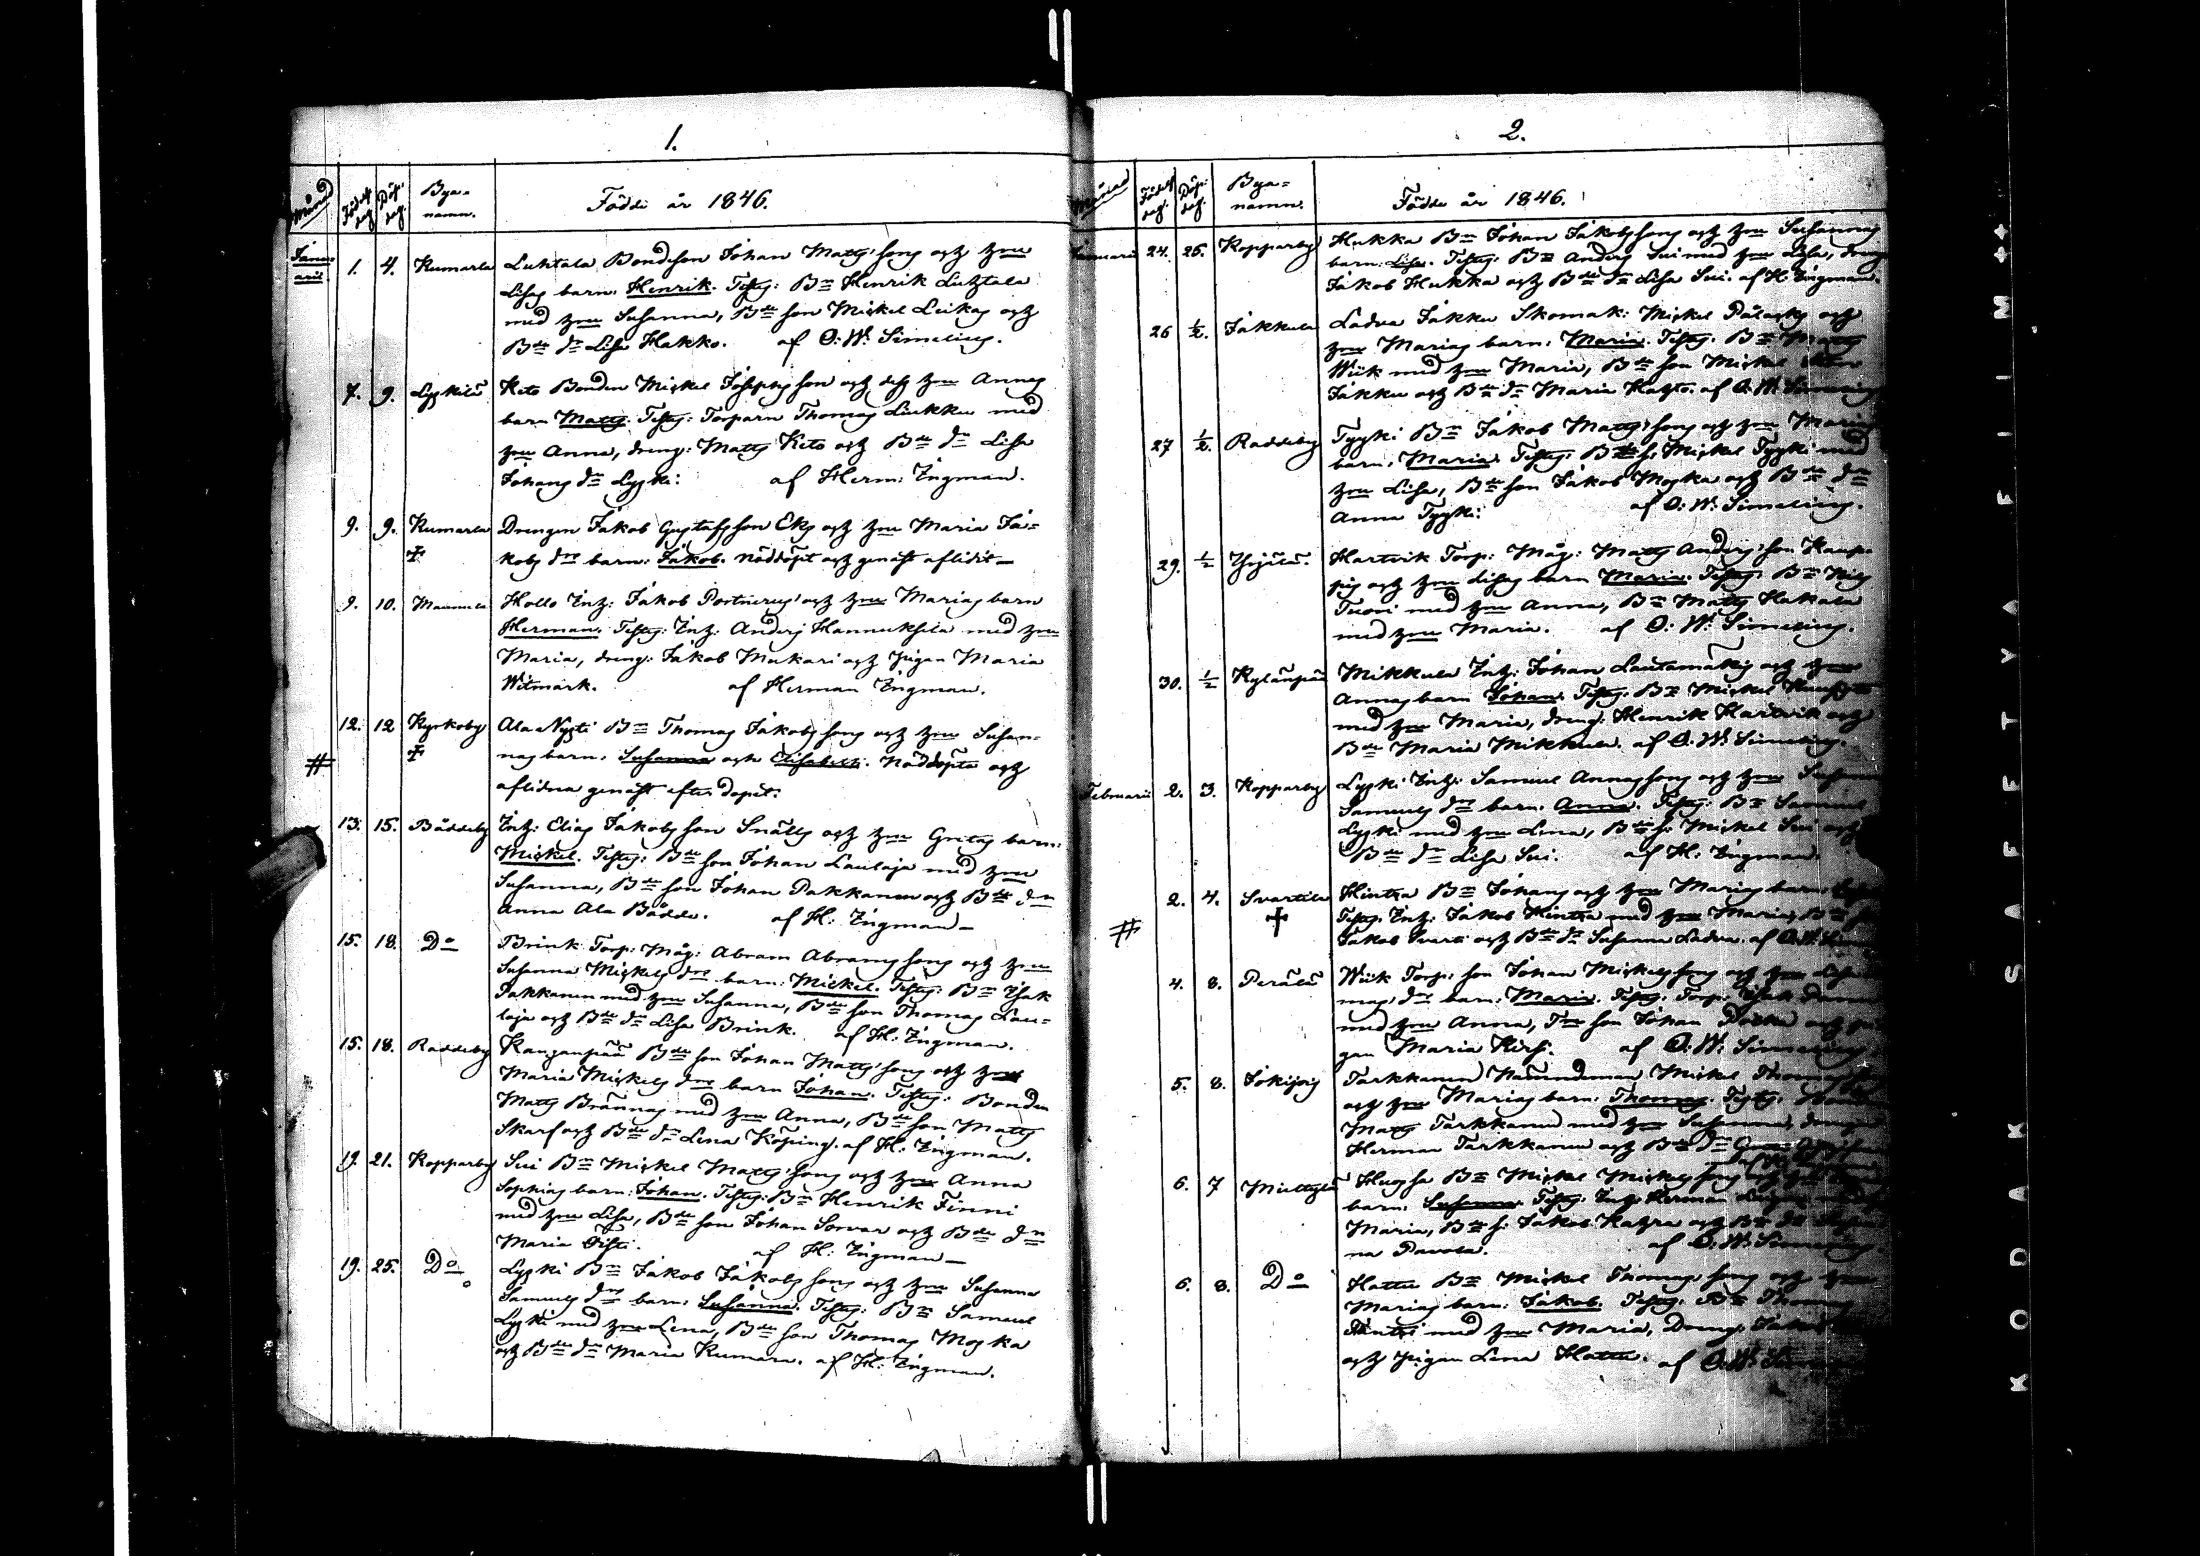 1.
Månad
Födelse dag
Döp: dag.
Bya= namn.
Födde år 1846.
Janu arii
1. 4. Kumarla Luhtala Bondeson Johan Matts'sons och hu
Lisas barn: Henrik. Testes: Bn Henrik Luhtala
med hu Susanna, Bde son Mickel Leikas och
Bde dr Lisa Hakko. af O. W. Simelius.
7. 9. Lyskilä Keto Bonden Mickel Josephsson och dess hu Annas
barn Matts. Testes: Torparn Thomas Liukku med
hu Anna, dreng: Matts Keto och Bde dr Lisa
Johans dr Lyski: af Herm: Ingman.
9. 9. Kumarla Drengen Jakob Gustafsson Eks och hu Maria Ja=
kobs dr barn: Jakob. Nöddöpt och genast aflidit —
9. 10. Maunula Hollo Inh: Jakob Portnerus' och hu Marias barn
Herman. Testes: Inh: Anders Hannuksela med hu
Maria, dreng: Jakob Mukari och pigan Maria
Witmark. af Herman Ingman.
12. 12 Kyrkoby Ala Nysti Bn Thomas Jakobssons och hu Susan=
nas barn: Susanna och Elisabeth. Nöddöpta och
aflidna genast efter dopet.
13. 15. Båddeby Inh: Elias Jakobsson Snälls och hu Gretas barn:
Mickel. Testes: Bde son Johan Laulaja med hu
Susanna, Bde son Johan Pakkanen och Bde dr
Anna Ala Bådde. af H: Ingman —
15. 18. Do Brink Torp: Måg: Abram Abramssons och hu
Susanna Mickels dr barn: Mickel. Testes: Bn Isak
Pakkanen med hu Susanna, Bde son Thomas Lau=
laja och Bde dr Lisa Brink. af H: Ingman.
15. 18. Raddeby Kanganpää Bde son Johan Matts'sons och hu
Maria Mickels dr barn Johan. Testes: Bonden
Matts Brännas med hu Anna, Bde son Matts
Skarf och Bde dr Lena Köping. af H: Ingman.
19. 21. Kopparby Sui Bn Mickel Matts'sons och hu Anna
Sophias barn: Johan. Testes: Bn Henrik Finni
med hu Lisa, Bde son Johan Sorvar och Bde dr
Maria Östi. af H: Ingman —
19. 25. Do Lyski Bn Jakob Jakobssons och hu Susanna
Samuels dr barn: Susanna. Testes: Bn Samuel
Lyski med hu Lena, Bde son Thomas Moska
och Bde dr Maria Kumara. af H: Ingman.
2.
Månad
Födelse dag.
Döp: dag.
Bya= namn.
Födde år 1846.
Januarii 24. 26. Kopparby Hukka Bn Johan Jakobssons och hu Susannas
barn: Lisa. Testes: Bn Anders Sui med hu Lisa, dreng
Jakob Hukka och Bde dr Lisa Sui. af H. Ingman.
26 1/2. Jåkkula Ladva Jåkku Skomak: Mickel och
hu Marias barn: Maria. Testes: Bn Matts
Wiik med hu Maria, Bde son Mickel
Jåkku och Bde dr Maria af O. W. Simelius
27 1/2. Raddeby Tyyki Bn Jakob Matts'sons och hu Marias
barn: Maria. Testes: Bde s: Mickel Tyyki med
hu Lisa, Bde son Jakob Moska och Bde dr
Anna Tyyki: af O. W. Simelius.
29. 1/2 Hartvik Torp: Måg: Matts Anders'son Kaup=
pis och hu Lisas barn Maria. Testes: Bn Nils
Tuori med hu Anna, Bn Matts Hakala
med hu Maria. af O. W. Simelius.
30. 1/2 Kylänpää Mikkula Inh: Johan Lautamäkis och hu
Annas barn Johan. Testes: Bn Mickel
med hu Maria, dreng: Henrik Hartvik och
Bde Maria Mikkula. af O. W. Simelius.
Februarii 2. 3. Kopparby Lyski Inh: Samuel Annassons och hu
Samuels dr barn: Anna. Testes: Bn Samuel
Lyski med hu Lena, Bde s: Mickel Sui och
Bde dr Lisa Sui. af H. Ingman.
2. 4. Svartila Hintsa Bn Johans och hu Marias barn:
Testes: Inh: Jakob Hintsa med hu Maria, Bde
Jakob Svart och Bde dr Susanna Ladva. af O. W.
4. 8. Perälä Wiik Torp: son Johan Mickelssons och hu
mas' dr barn: Maria. Testes: Torp: Isak
med hu Anna, son Johan och pi=
gan Maria Hirs. af O. W. Simelius
5. 8. Jokipii Tarkkanen Mickel
och hu Marias barn: Thomas. Testes:
Matts Tarkkanen med hu Susanna, drengen
Herman Tarkkanen och Bde dr
6. 7 Hugsa Bn Mickel Mickelssons och hu
barn: Susanna. Testes: Inh: Herman
Maria, Bde s: Jakob och Bde dr
na Pavola. af O. W. Simelius.
6. 8. Do Hattu Bn Mickel Thomas'sons och hu
Marias barn: Jakob. Testes: Bn Thomas
med hu Maria, Dreng:
och pigan Lena Hattu. af O. W.
KODAK SAFETY A FILM